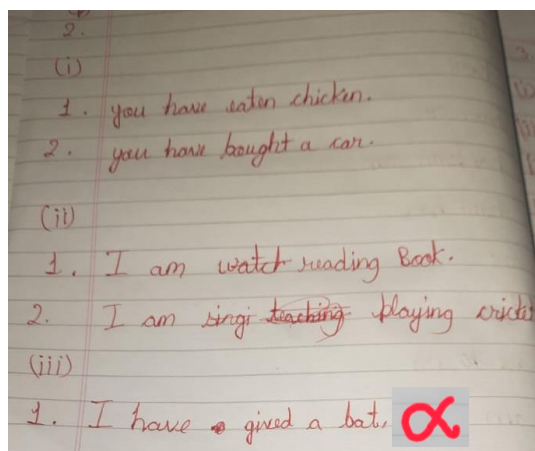 2.
(i)
1. you have eaten chicken.
2. you have bought a car.
(ii)
1. I am watch reading Book.
2. I am singi teaching playing
(iii)
1. I have gived a bat. α